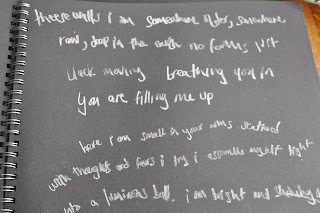 these walls i am somewhere older, somewhere
raw, deep in the earth no forms just
black moving breathing you in
you are filling me up
here i am small in your arms scattered
with thoughts and fears i try i assemble myself tight
into a luminous ball. i am bright and